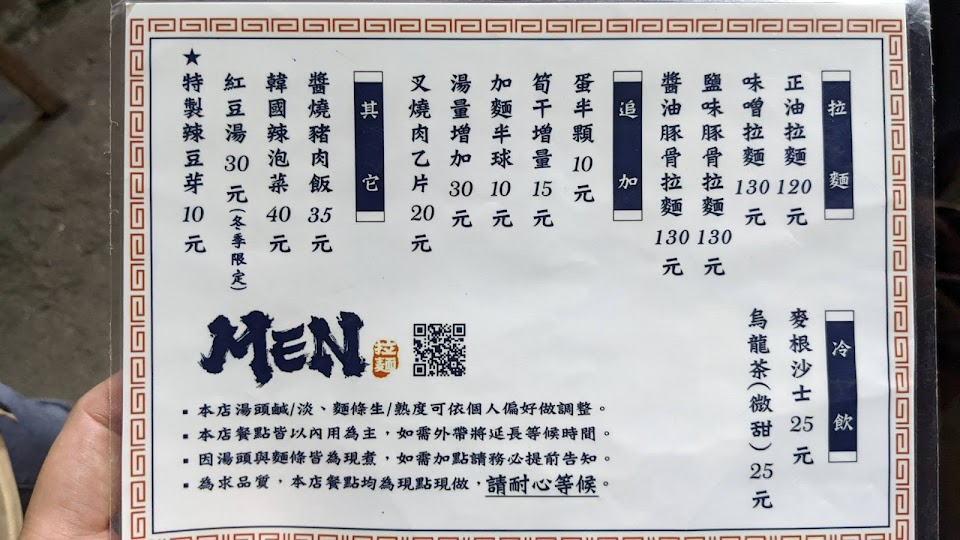 拉麵
正油拉麵 120 元
味噌拉麵 130 元
鹽味豚骨拉麵 130 元
醬油豚骨拉麵 130 元
追加
蛋半顆 10 元
筍干增量 15 元
加麵半球 10 元
湯量增加 30 元
叉燒肉乙片 20 元
其它
醬燒豬肉飯 35 元
韓國辣泡菜 40 元
紅豆湯 30 元(冬季限定)
★特製辣豆芽 10 元
冷飲
麥根沙士 25 元
烏龍茶(微甜) 25 元
MEN 拉麵
▪ 本店湯頭鹹/淡、麵條生/熟度可依個人偏好做調整。
▪ 本店餐點皆以內用為主，如需外帶將延長等候時間。
▪ 因湯頭與麵條皆為現煮，如需加點請務必提前告知。
▪ 為求品質，本店餐點均為現點現做，請耐心等候。